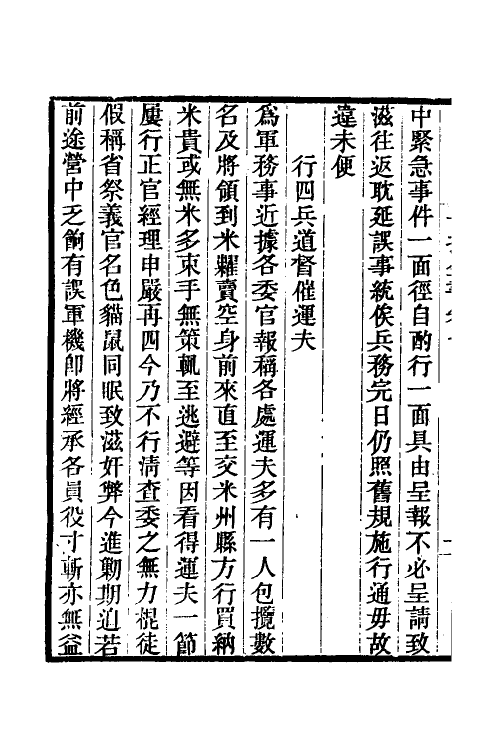 中緊急事件一面徑自酌行一面具由呈報不必呈請致
滋往返耽延誤事統俟兵務完日仍照舊規施行通毋故
違未便
行四兵道督催運夫
爲軍務事近據各委官報稱各處運夫多有一人包攬數
名及將領到米糶賣空身前來直至交米州縣方行買納
米貴或無米多束手無策輒至逃避等因看得運夫一節
屢行正官經理申嚴再四今乃不行淸查委之無力棍徒
假稱省祭義官名色貓鼠同眠致滋奸弊今進勦期迫若
前途營中乏餉有誤軍機卽將經承各員役寸斬亦無益